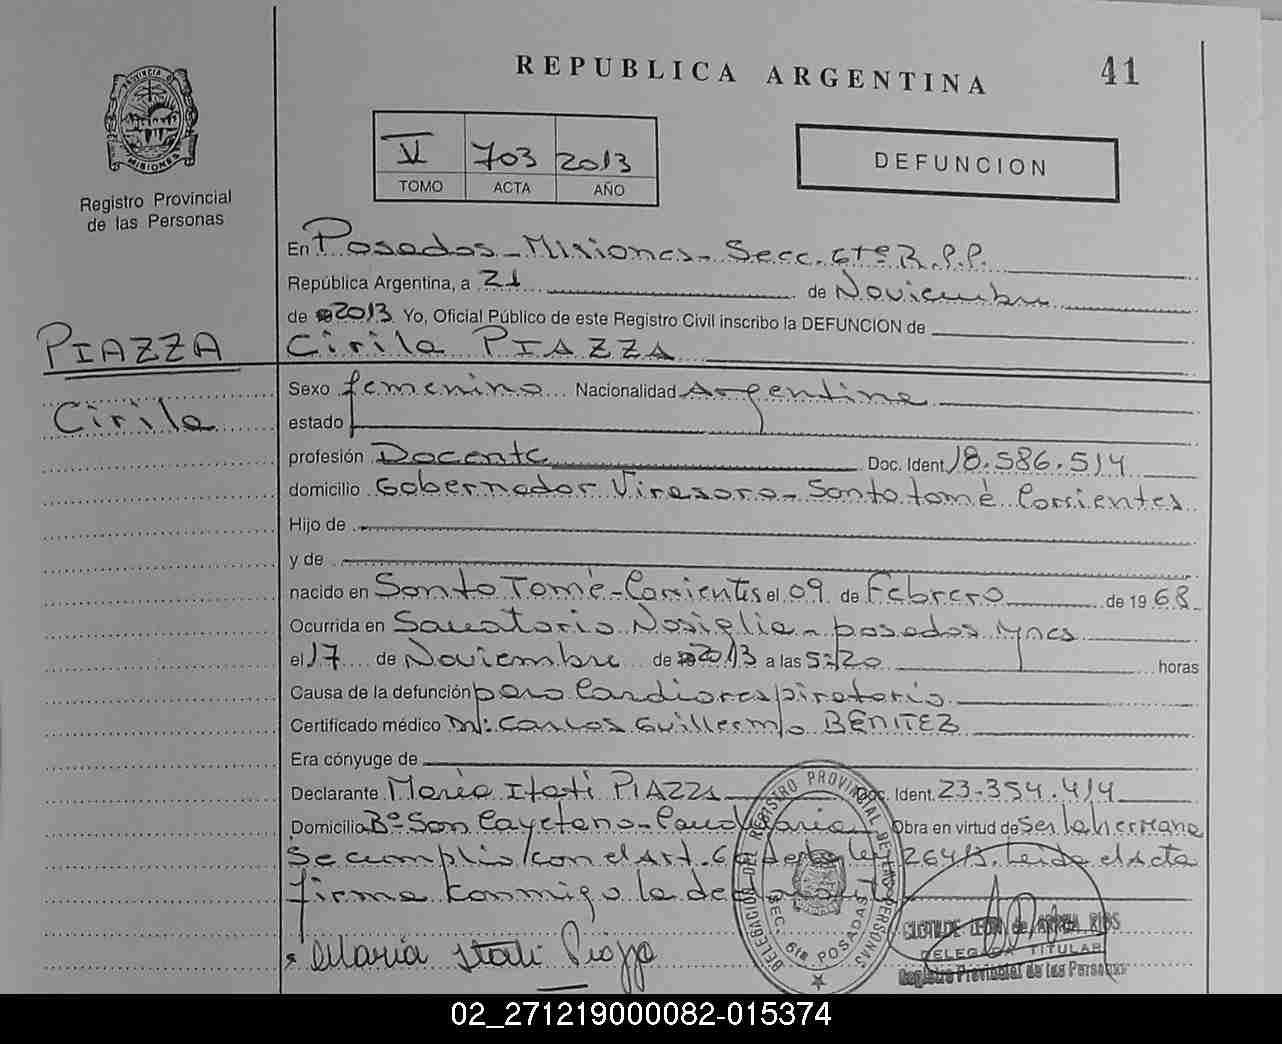 REPUBLICA ARGENTINA
41
PROVINCIA DE
MISIONES
Registro Provincial
de las Personas
V 703 2013
TOMO ACTA AÑO
DEFUNCION
En Posadas - Misiones - Secc. 6ta R.P.P.
República Argentina, a 21 de Noviembre
de 2013 Yo, Oficial Público de este Registro Civil inscribo la DEFUNCION de
PIAZZA
Cirila PIAZZA
Cirila
Sexo femenino Nacionalidad Argentina
estado
profesión Docente Doc. Ident. 18.586.514
domicilio Gobernador Virasoro - Santo tomé Corrientes
Hijo de
y de
nacido en Santo Tomé - Corrientes el 09 de Febrero de 1968
Ocurrida en Sanatorio Nosiglia - posadas Mnes
el 17 de Noviembre de 2013 a las 5:20 horas
Causa de la defunción paro Cardiorespiratorio
Certificado médico M: Carlos Guillermo BENITEZ
Era cónyuge de
Declarante María Itatí PIAZZA Doc. Ident. 23-354.414
Domicilia Bº San Cayetano - Candelaria Obra en virtud de Ser la hermana
Se cumplio con el Art. 6 de la ley 26413. Leida el Acta
firma conmigo la declarante
María Itatí Piazza
DELEGACION DEL REGISTRO PROVINCIAL DE LAS PERSONAS
SEC. 6ta POSADAS
CLOTILDE de RIOS
DELEGADA TITULAR
Registro Provincial de las Personas
02_271219000082-015374